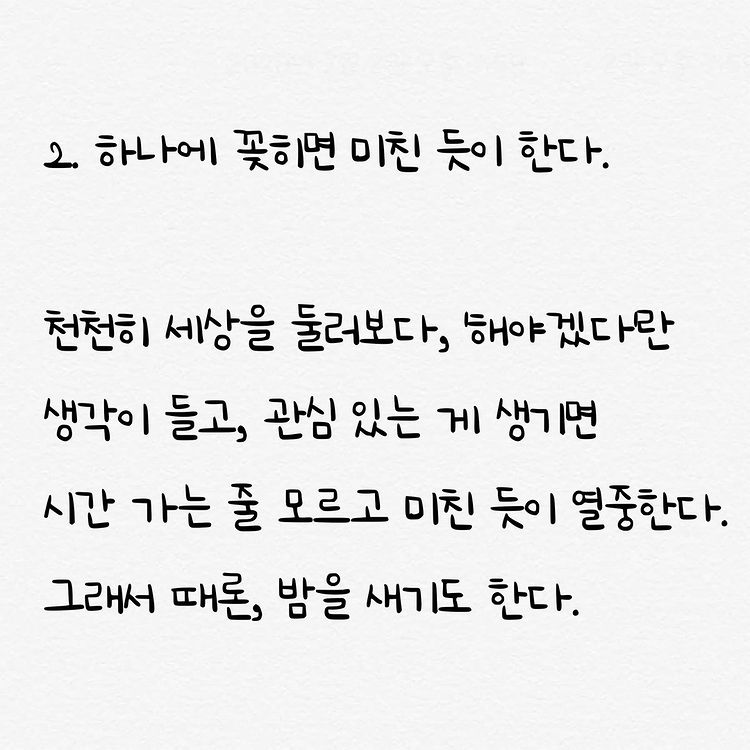 2. 하나에 꽂히면 미친 듯이 한다.
천천히 세상을 둘러보다, '해야겠다'란
생각이 들고, 관심 있는 게 생기면
시간 가는 줄 모르고 미친 듯이 열중한다.
그래서 때론, 밤을 새기도 한다.